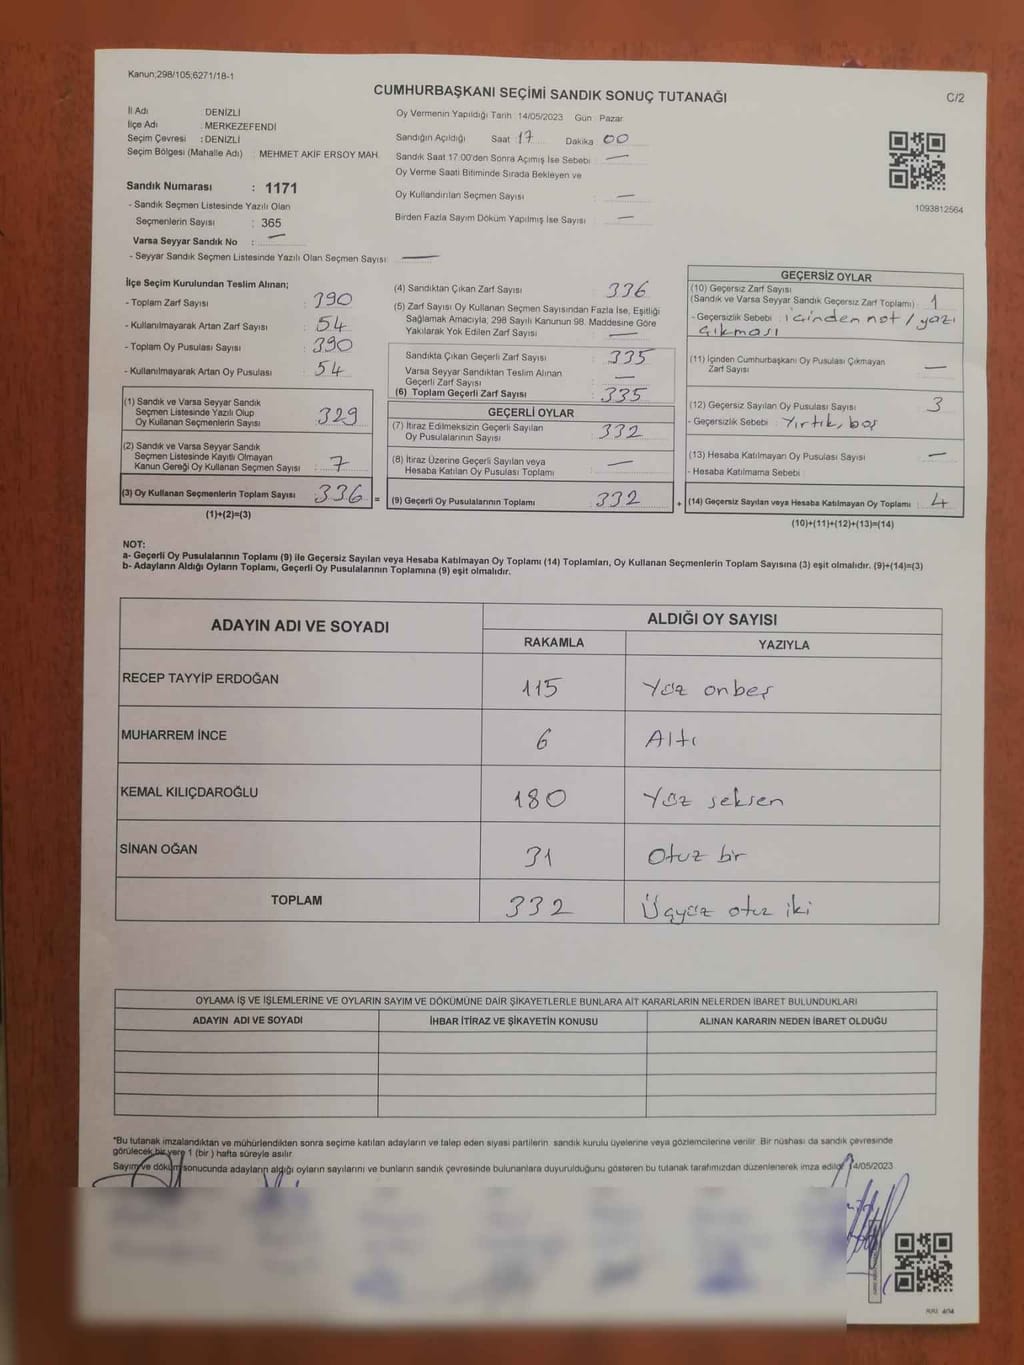 Kanun;298/105;6271/18-1
CUMHURBAŞKANI SEÇİMİ SANDIK SONUÇ TUTANAĞI
C/2
İl Adı DENİZLİ
İlçe Adı : MERKEZEFENDİ
Seçim Çevresi : DENİZLİ
Seçim Bölgesi (Mahalle Adı) : MEHMET AKİF ERSOY MAH.
Sandık Numarası : 1171
- Sandık Seçmen Listesinde Yazılı Olan
Seçmenlerin Sayısı : 365
Varsa Seyyar Sandık No : —
- Seyyar Sandık Seçmen Listesinde Yazılı Olan Seçmen Sayısı —
Oy Vermenin Yapıldığı Tarih 14/05/2023 Gün Pazar
Sandığın Açıldığı Saat 17 Dakika 00
Sandık Saat 17:00'den Sonra Açımış İse Sebebi —
Oy Verme Saati Bitiminde Sırada Bekleyen ve
Oy Kullandırılan Seçmen Sayısı : —
Birden Fazla Sayım Döküm Yapılmış İse Sayısı : —
1093812564
İlçe Seçim Kurulundan Teslim Alınan;
- Toplam Zarf Sayısı : 390
- Kullanılmayarak Artan Zarf Sayısı : 54
- Toplam Oy Pusulası Sayısı : 390
- Kullanılmayarak Artan Oy Pusulası : 54
(1) Sandık ve Varsa Seyyar Sandık
Seçmen Listesinde Yazılı Olup
Oy Kullanan Seçmenlerin Sayısı : 329
(2) Sandık ve Varsa Seyyar Sandık
Seçmen Listesinde Kayıtlı Olmayan
Kanun Gereği Oy Kullanan Seçmen Sayısı : 7
(3) Oy Kullanan Seçmenlerin Toplam Sayısı : 336 =
(1)+(2)=(3)
(4) Sandıktan Çıkan Zarf Sayısı : 336
(5) Zarf Sayısı Oy Kullanan Seçmen Sayısından Fazla İse, Eşitliği
Sağlamak Amacıyla; 298 Sayılı Kanunun 98. Maddesine Göre
Yakılarak Yok Edilen Zarf Sayısı : —
Sandıkta Çıkan Geçerli Zarf Sayısı : 335
Varsa Seyyar Sandıktan Teslim Alınan
Geçerli Zarf Sayısı : —
(6) Toplam Geçerli Zarf Sayısı : 335
GEÇERLİ OYLAR
(7) İtiraz Edilmeksizin Geçerli Sayılan
Oy Pusulalarının Sayısı : 332
(8) İtiraz Üzerine Geçerli Sayılan veya
Hesaba Katılan Oy Pusulası Toplamı : —
(9) Geçerli Oy Pusulalarının Toplamı : 332 +
GEÇERSİZ OYLAR
(10) Geçersiz Zarf Sayısı
(Sandık ve Varsa Seyyar Sandık Geçersiz Zarf Toplamı) : 1
- Geçersizlik Sebebi : içinden not / yazı
çıkması
(11) İçinden Cumhurbaşkanı Oy Pusulası Çıkmayan
Zarf Sayısı : —
(12) Geçersiz Sayılan Oy Pusulası Sayısı : 3
- Geçersizlik Sebebi : Yırtık, boş
(13) Hesaba Katılmayan Oy Pusulası Sayısı : —
- Hesaba Katılmama Sebebi :
(14) Geçersiz Sayılan veya Hesaba Katılmayan Oy Toplamı : 4
(10)+(11)+(12)+(13)=(14)
NOT:
a- Geçerli Oy Pusulalarının Toplamı (9) ile Geçersiz Sayılan veya Hesaba Katılmayan Oy Toplamı (14) Toplamları, Oy Kullanan Seçmenlerin Toplam Sayısına (3) eşit olmalıdır. (9)+(14)=(3)
b- Adayların Aldığı Oyların Toplamı, Geçerli Oy Pusulalarının Toplamına (9) eşit olmalıdır.
ADAYIN ADI VE SOYADI ALDIĞI OY SAYISI
RAKAMLA YAZIYLA
RECEP TAYYİP ERDOĞAN 115 Yüz onbeş
MUHARREM İNCE 6 Altı
KEMAL KILIÇDAROĞLU 180 Yüz seksen
SİNAN OĞAN 31 Otuz bir
TOPLAM 332 Üçyüz otuz iki
OYLAMA İŞ VE İŞLEMLERİNE VE OYLARIN SAYIM VE DÖKÜMÜNE DAİR ŞİKAYETLERLE BUNLARA AİT KARARLARIN NELERDEN İBARET BULUNDUKLARI
ADAYIN ADI VE SOYADI İHBAR İTİRAZ VE ŞİKAYETİN KONUSU ALINAN KARARIN NEDEN İBARET OLDUĞU
*Bu tutanak imzalandıktan ve mühürlendikten sonra seçime katılan adayların ve talep eden siyasi partilerin sandık kurulu üyelerine veya gözlemcilerine verilir. Bir nüshası da sandık çevresinde
görülecek bir yere 1 (bir) hafta süreyle asılır.
Sayım ve döküm sonucunda adayların aldığı oyların sayılarını ve bunların sandık çevresinde bulunanlara duyurulduğunu gösteren bu tutanak tarafımızdan düzenlenerek imza edildi. 14/05/2023